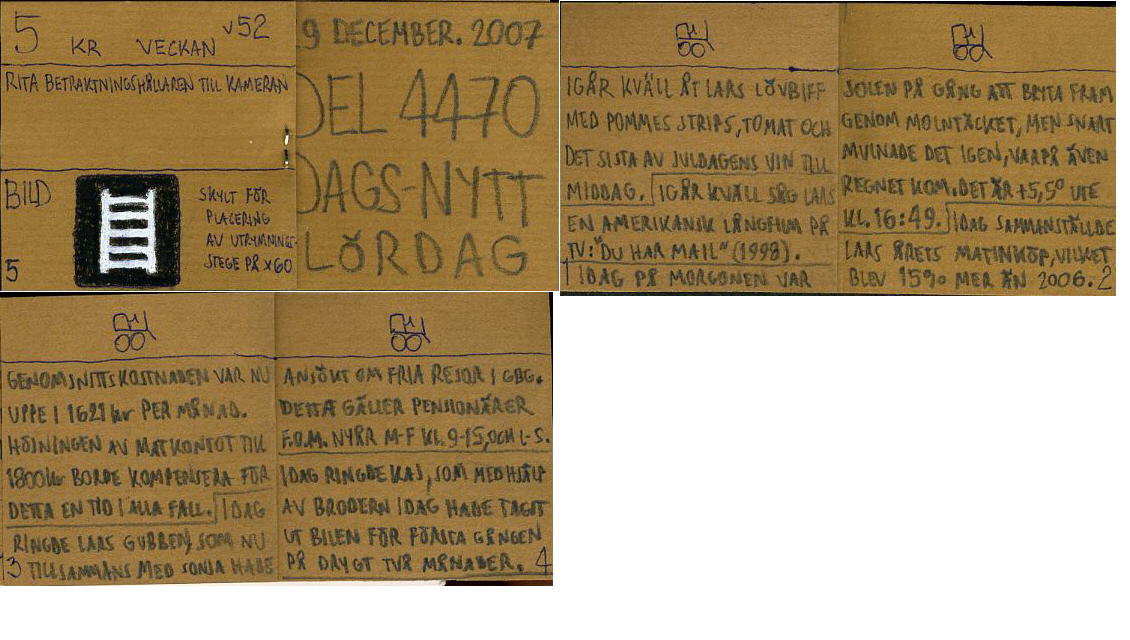 5 KR VECKAN V52
RITA BETRAKTNINGSHÅLLAREN TILL KAMERAN
BILD
5
SKYLT FÖR
PLACERING
AV UTRYMNINGS-
STEGE PÅ X60
9 DECEMBER. 2007
DEL 4470
DAGS-NYTT
LÖRDAG
IGÅR KVÄLL ÅT LARS LÖVBIFF
MED POMMES STRIPS, TOMAT OCH
DET SISTA AV JULDAGENS VIN TILL
MIDDAG. IGÅR KVÄLL SÅG LARS
EN AMERIKANSK LÅNGFILM PÅ
TV: "DU HAR MAIL" (1998).
1 IDAG PÅ MORGONEN VAR
SOLEN PÅ GÅNG ATT BRYTA FRAM
GENOM MOLNTÄCKET, MEN SNART
MULNADE DET IGEN, VARPÅ ÄVEN
REGNET KOM. DET ÄR +5,5° UTE
KL. 16:49. IDAG SAMMANSTÄLLDE
LARS ÅRETS MATINKÖP, VILKET
BLEV 15% MER ÄN 2006. 2
GENOMSNITTSKOSTNADEN VAR NU
UPPE I 1621 kr PER MÅNAD.
HÖJNINGEN AV MATKONTOT TILL
1800 kr BORDE KOMPENSERA FÖR
DETTA EN TID I ALLA FALL. IDAG
RINGDE LARS GUBBEN, SOM NU
3 TILLSAMMANS MED SONJA HADE
ANSÖKT OM FRIA RESOR I GBG.
DETTA GÄLLER PENSIONÄRER
F.O.M. NYÅR M-F KL. 9-15, OCH L-S.
IDAG RINGDE KAJ, SOM MED HJÄLP
AV BRODERN IDAG HADE TAGIT
UT BILEN FÖR FÖRSTA GÅNGEN
PÅ DRYGT TVÅ MÅNADER. 4